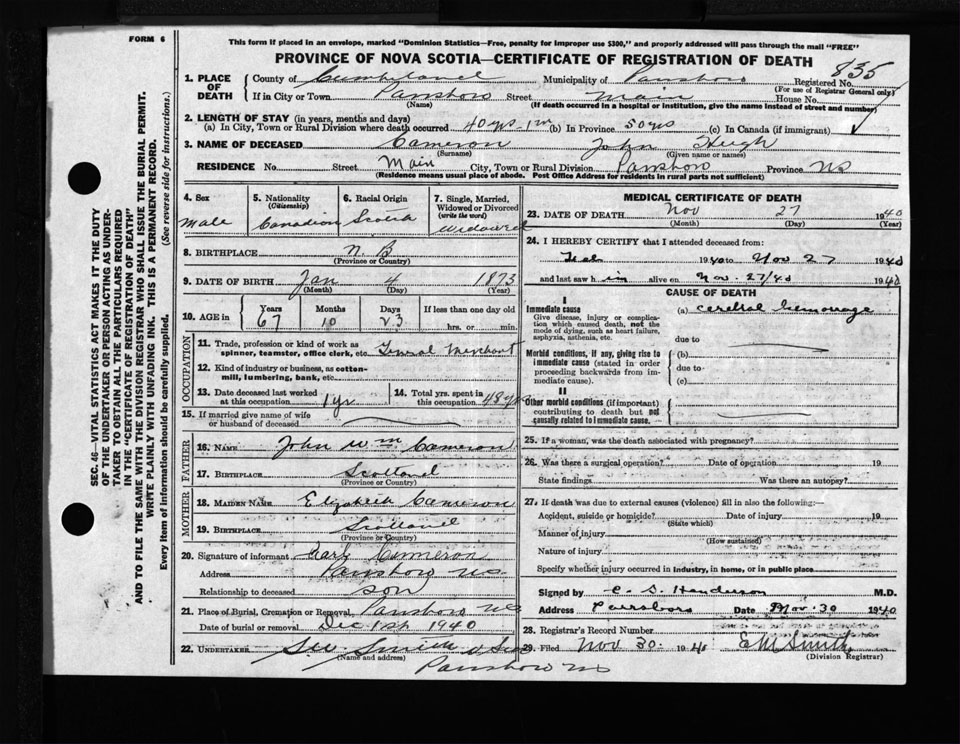 FORM 6
This form if placed in an envelope, marked "Dominion Statistics—Free, penalty for improper use $300," and properly addressed will pass through the mail "FREE"
PROVINCE OF NOVA SCOTIA—CERTIFICATE OF REGISTRATION OF DEATH
835
1. PLACE OF DEATH County of Cumberland Municipality of Parrsboro Registered No.
(For use of Registrar General only)
If in City or Town Parrsboro Street Main House No.
(Name) (If death occurred in a hospital or institution, give the name instead of street and number)
2. LENGTH OF STAY (in years, months and days)
(a) In City, Town or Rural Division where death occurred 40 yrs 1 m (b) In Province 50 yrs (c) In Canada (if immigrant)
3. NAME OF DECEASED Cameron John Hugh
(Surname) (Given name or names)
RESIDENCE No. Street Main City, Town or Rural Division Parrsboro Province NS
(Residence means usual place of abode. Post Office Address for residents in rural parts not sufficient)
4. Sex Male
5. Nationality (Citizenship) Canadian
6. Racial Origin Scotch
7. Single, Married, Widowed or Divorced (write the word) Widowed
8. BIRTHPLACE N. B
(Province or Country)
9. DATE OF BIRTH Jan 4 1873
(Month) (Day) (Year)
10. AGE in Years Months Days If less than one day old
67 10 23 hrs. or min.
OCCUPATION
11. Trade, profession or kind of work as spinner, teamster, office clerk, etc. General Merchant
12. Kind of industry or business, as cotton-mill, lumbering, bank, etc.
13. Date deceased last worked at this occupation 1 yr
14. Total yrs. spent in this occupation 48 yrs
15. If married give name of wife or husband of deceased
FATHER
16. NAME John Wm Cameron
17. BIRTHPLACE Scotland
(Province or Country)
MOTHER
18. MAIDEN NAME Elizabeth Cameron
19. BIRTHPLACE Scotland
(Province or Country)
20. Signature of informant Earl Cameron
Address Parrsboro NS
Relationship to deceased son
21. Place of Burial, Cremation or Removal Parrsboro NS
Date of burial or removal Dec 1st 1940
22. UNDERTAKER Smith & Son
(Name and address)
Parrsboro NS
MEDICAL CERTIFICATE OF DEATH
23. DATE OF DEATH Nov 27 1940
(Month) (Day) (Year)
24. I HEREBY CERTIFY that I attended deceased from:
Feb 1940 to Nov 27 1940
and last saw him alive on Nov. 27/40 1940
CAUSE OF DEATH
I
Immediate cause (a) cerebral hemorrage
Give disease, injury or complication which caused death, not the mode of dying, such as heart failure, asphyxia, asthenia, etc.
due to
Morbid conditions, if any, giving rise to immediate cause (stated in order proceeding backwards from immediate cause).
(b)
due to
(c)
II
Other morbid conditions (if important) contributing to death but not causally related to immediate cause.
25. If a woman, was the death associated with pregnancy?
26. Was there a surgical operation? Date of operation 19
State findings Was there an autopsy?
27. If death was due to external causes (violence) fill in also the following:—
Accident, suicide or homicide? Date of injury 19
(State which)
Manner of injury
(How sustained)
Nature of injury
Specify whether injury occurred in industry, in home, or in public place
Signed by C. S. Henderson M.D.
Address Parrsboro Date Nov. 30 1940
28. Registrar's Record Number
29. Filed Nov 30. 1940 E M Smith
(Division Registrar)
SEC. 46—VITAL STATISTICS ACT MAKES IT THE DUTY
OF THE UNDERTAKER OR PERSON ACTING AS UNDER-
TAKER TO OBTAIN ALL THE PARTICULARS REQUIRED
IN THE "CERTIFICATE OF REGISTRATION OF DEATH"
AND TO FILE THE SAME WITH THE DIVISION REGISTRAR WHO SHALL ISSUE THE BURIAL PERMIT.
WRITE PLAINLY WITH UNFADING INK. THIS IS A PERMANENT RECORD.
Every item of information should be carefully supplied. (See reverse side for instructions.)